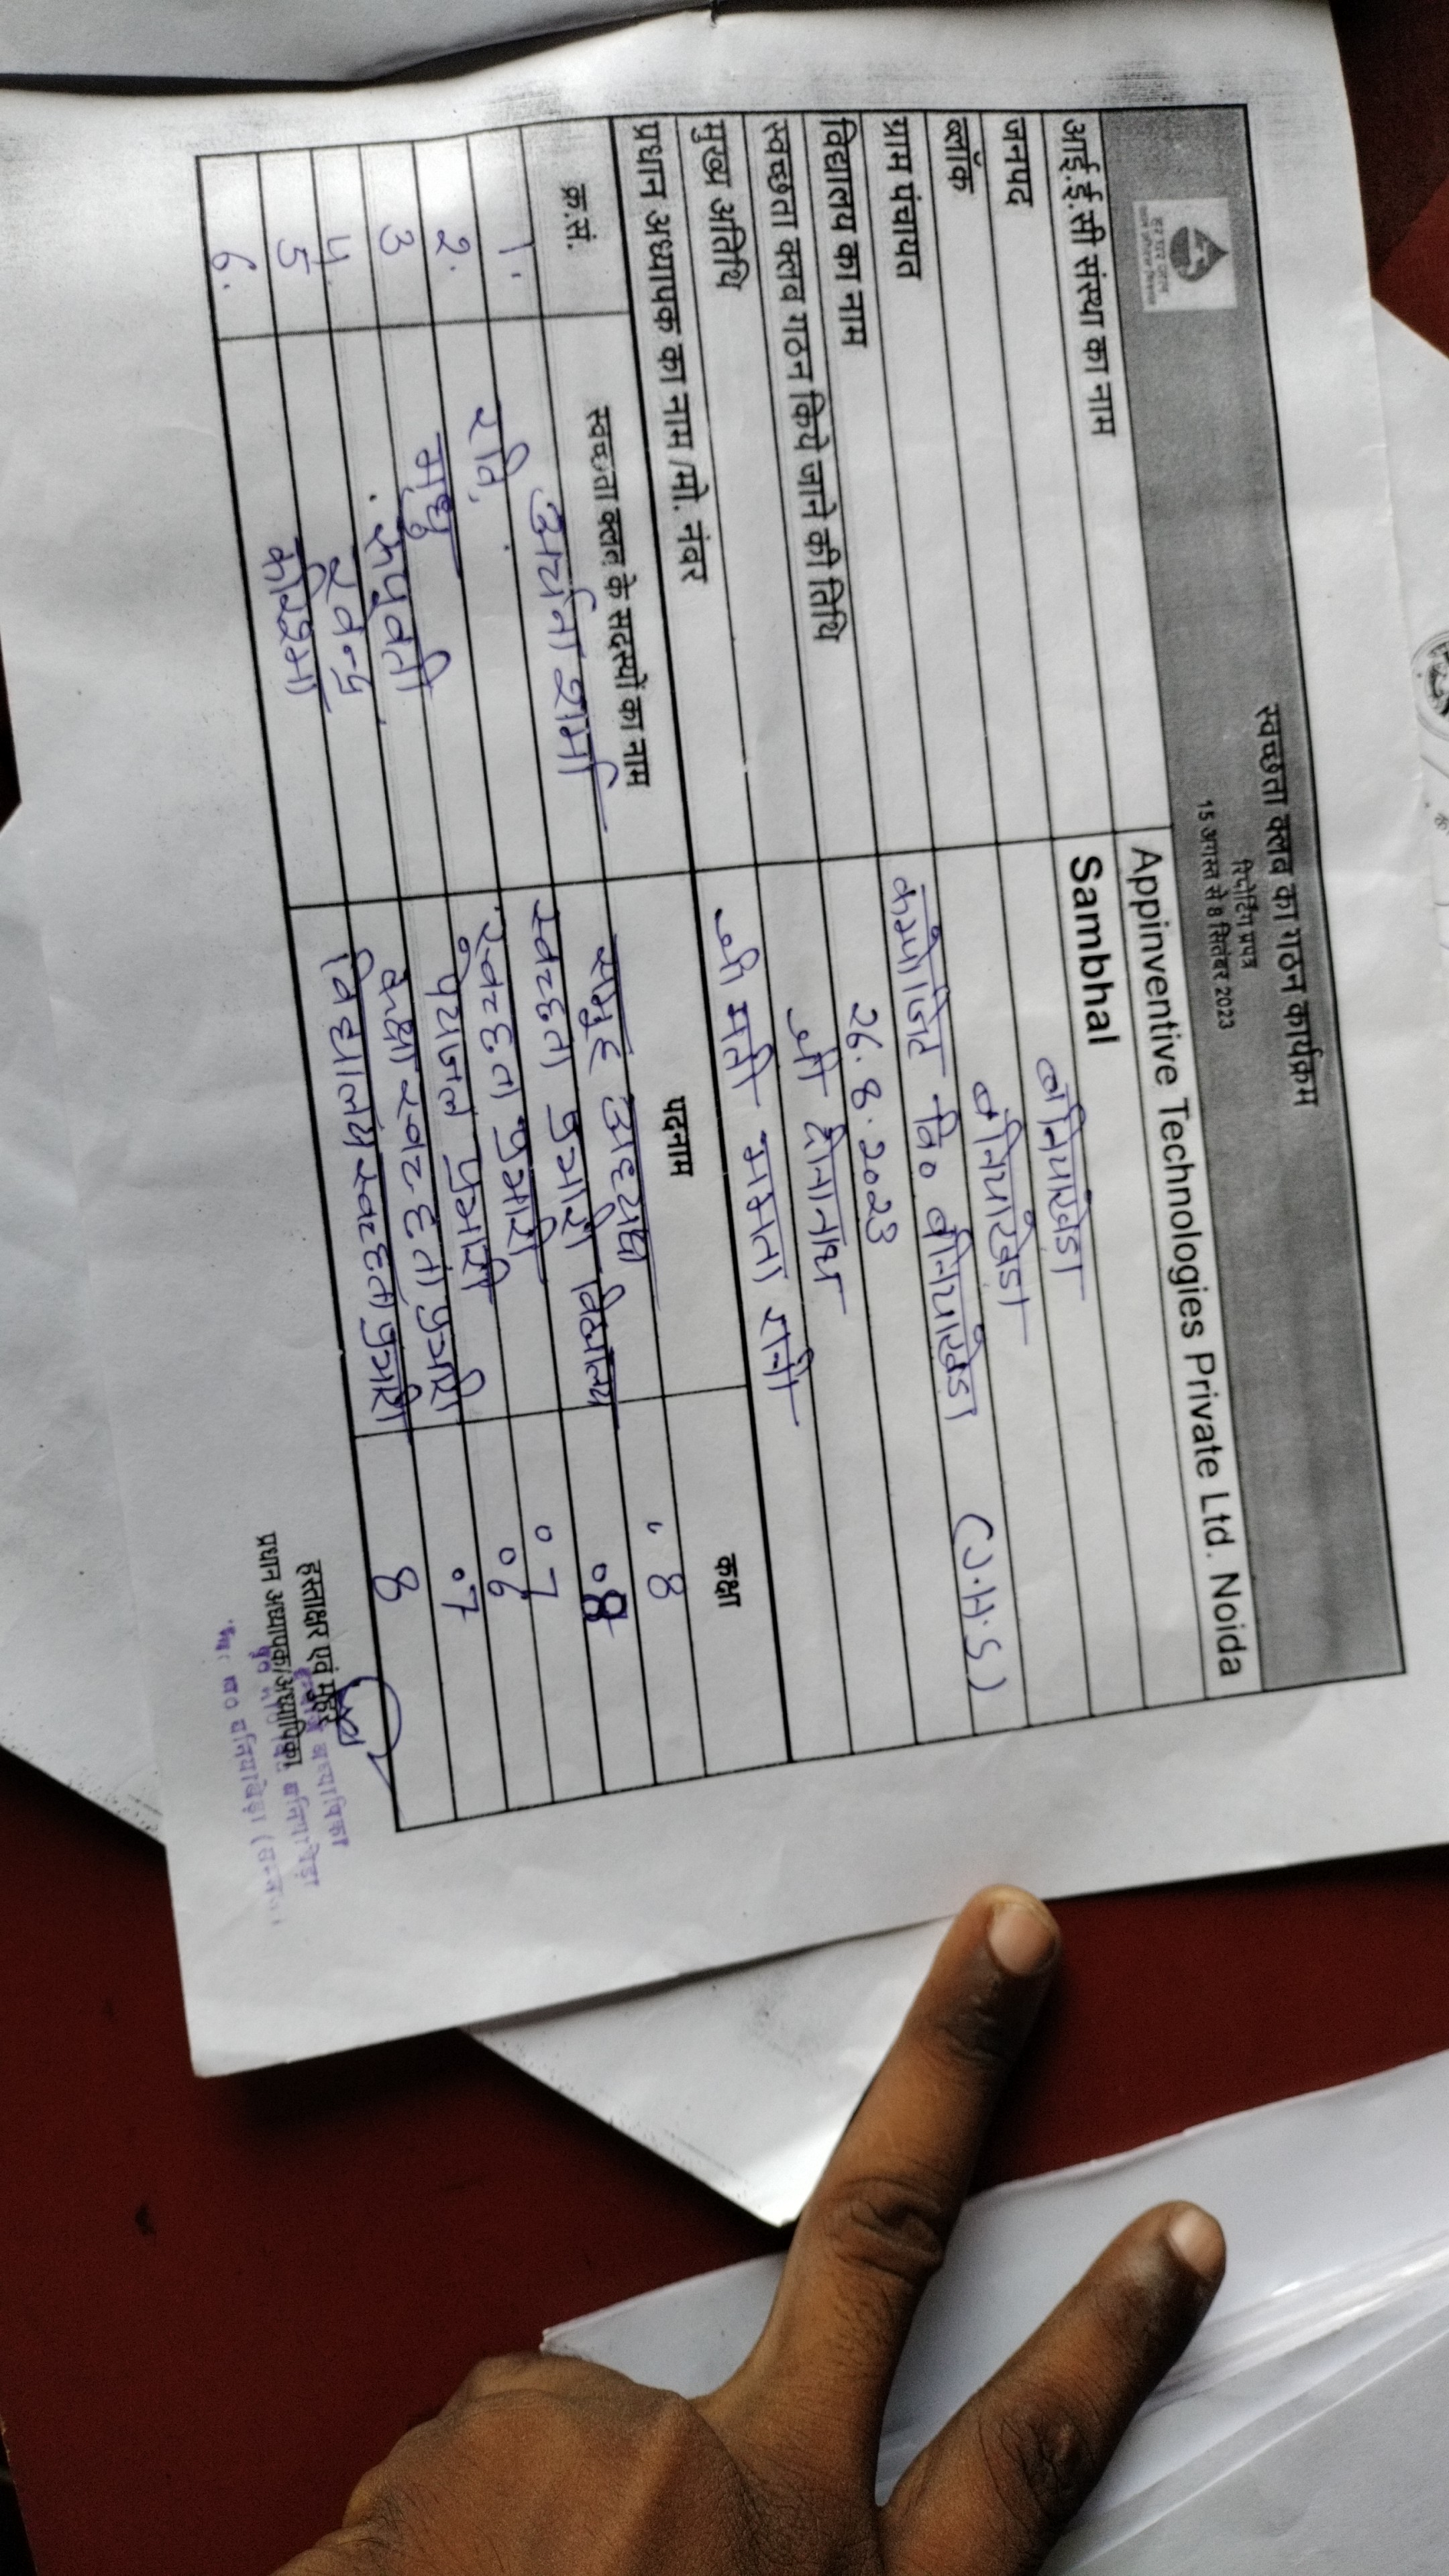 स्वच्छता क्लब का गठन कार्यक्रम
रिपोर्टिंग प्रपत्र
15 अगस्त से 8 सितंबर 2023
आई.ई.सी संस्था का नाम Appinventive Technologies Private Ltd. Noida
जनपद Sambhal
ब्लॉक बनियाखेडा
ग्राम पंचायत बनियाखेडा
विद्यालय का नाम कंम्पोजिट वि० बनियाखेडा (U.H.S)
स्वच्छता क्लब गठन किये जाने की तिथि 26.8.2023
मुख्य अतिथि श्री दीनानाथ
प्रधान अध्यापक का नाम/मो. नंबर श्री मती ममता रानी
क्र.सं. स्वच्छता क्लब के सदस्यों का नाम पदनाम कक्षा
1. अर्चना शर्मा समुह अध्यक्ष 8
2. रवि स्वच्छता प्रभारी विद्यालय 8
3 मधु स्वच्छता प्रभारी 7
4. रूपवती पेयजल प्रभारी 6
5 कक्षा स्वच्छता प्रभारी 7
6. करिश्मा विद्यालय स्वच्छता प्रभारी 8
हस्ताक्षर एवं मुहर
प्रधान अध्यापक/अध्यापिका